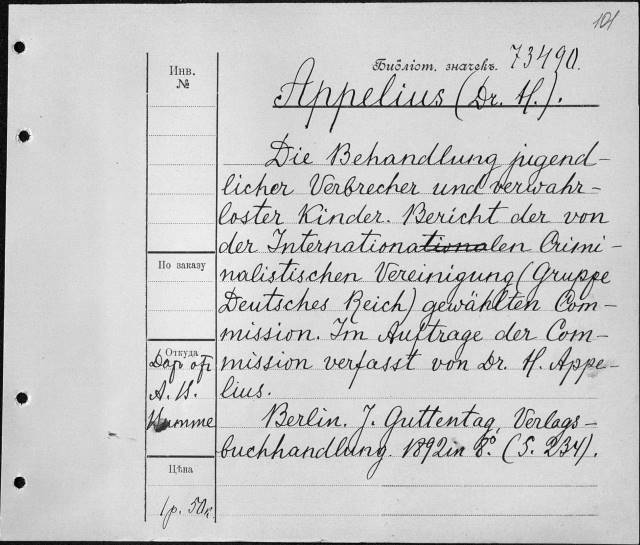 101
Библіот. значекъ. 73490.
Appelius (Dr. H.).
Инв.
№
Die Behandlung jugend-
licher Verbrecher und verwahr-
loster Kinder. Bericht der von
der Internationationalen Crimi-
nalistischen Vereinigung (Gruppe
Deutsches Reich) gewählten Com-
mission. Im Auftrage der Com-
mission verfasst von Dr. H. Appe-
lius.
Berlin. J. Guttentag, Verlags-
buchhandlung. 1892 in 8º. (S. 234).
По заказу
Откуда
Дар от
А.
Цѣна
1 р. 50 к.